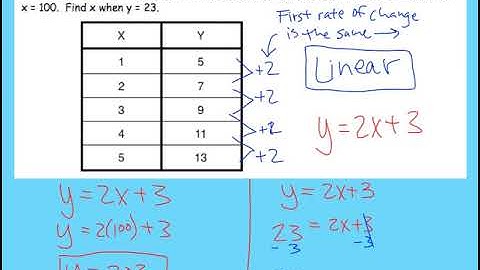 x = 100. Find x when y = 23.
First rate of change
is the same →
X Y
1 5
2 7
3 9
4 11
5 13
+2
+2
+2
+2
Linear
y = 2x + 3
y = 2x + 3
y = 2(100) + 3
y = 2x+3
23 = 2x+3
- 3 -3